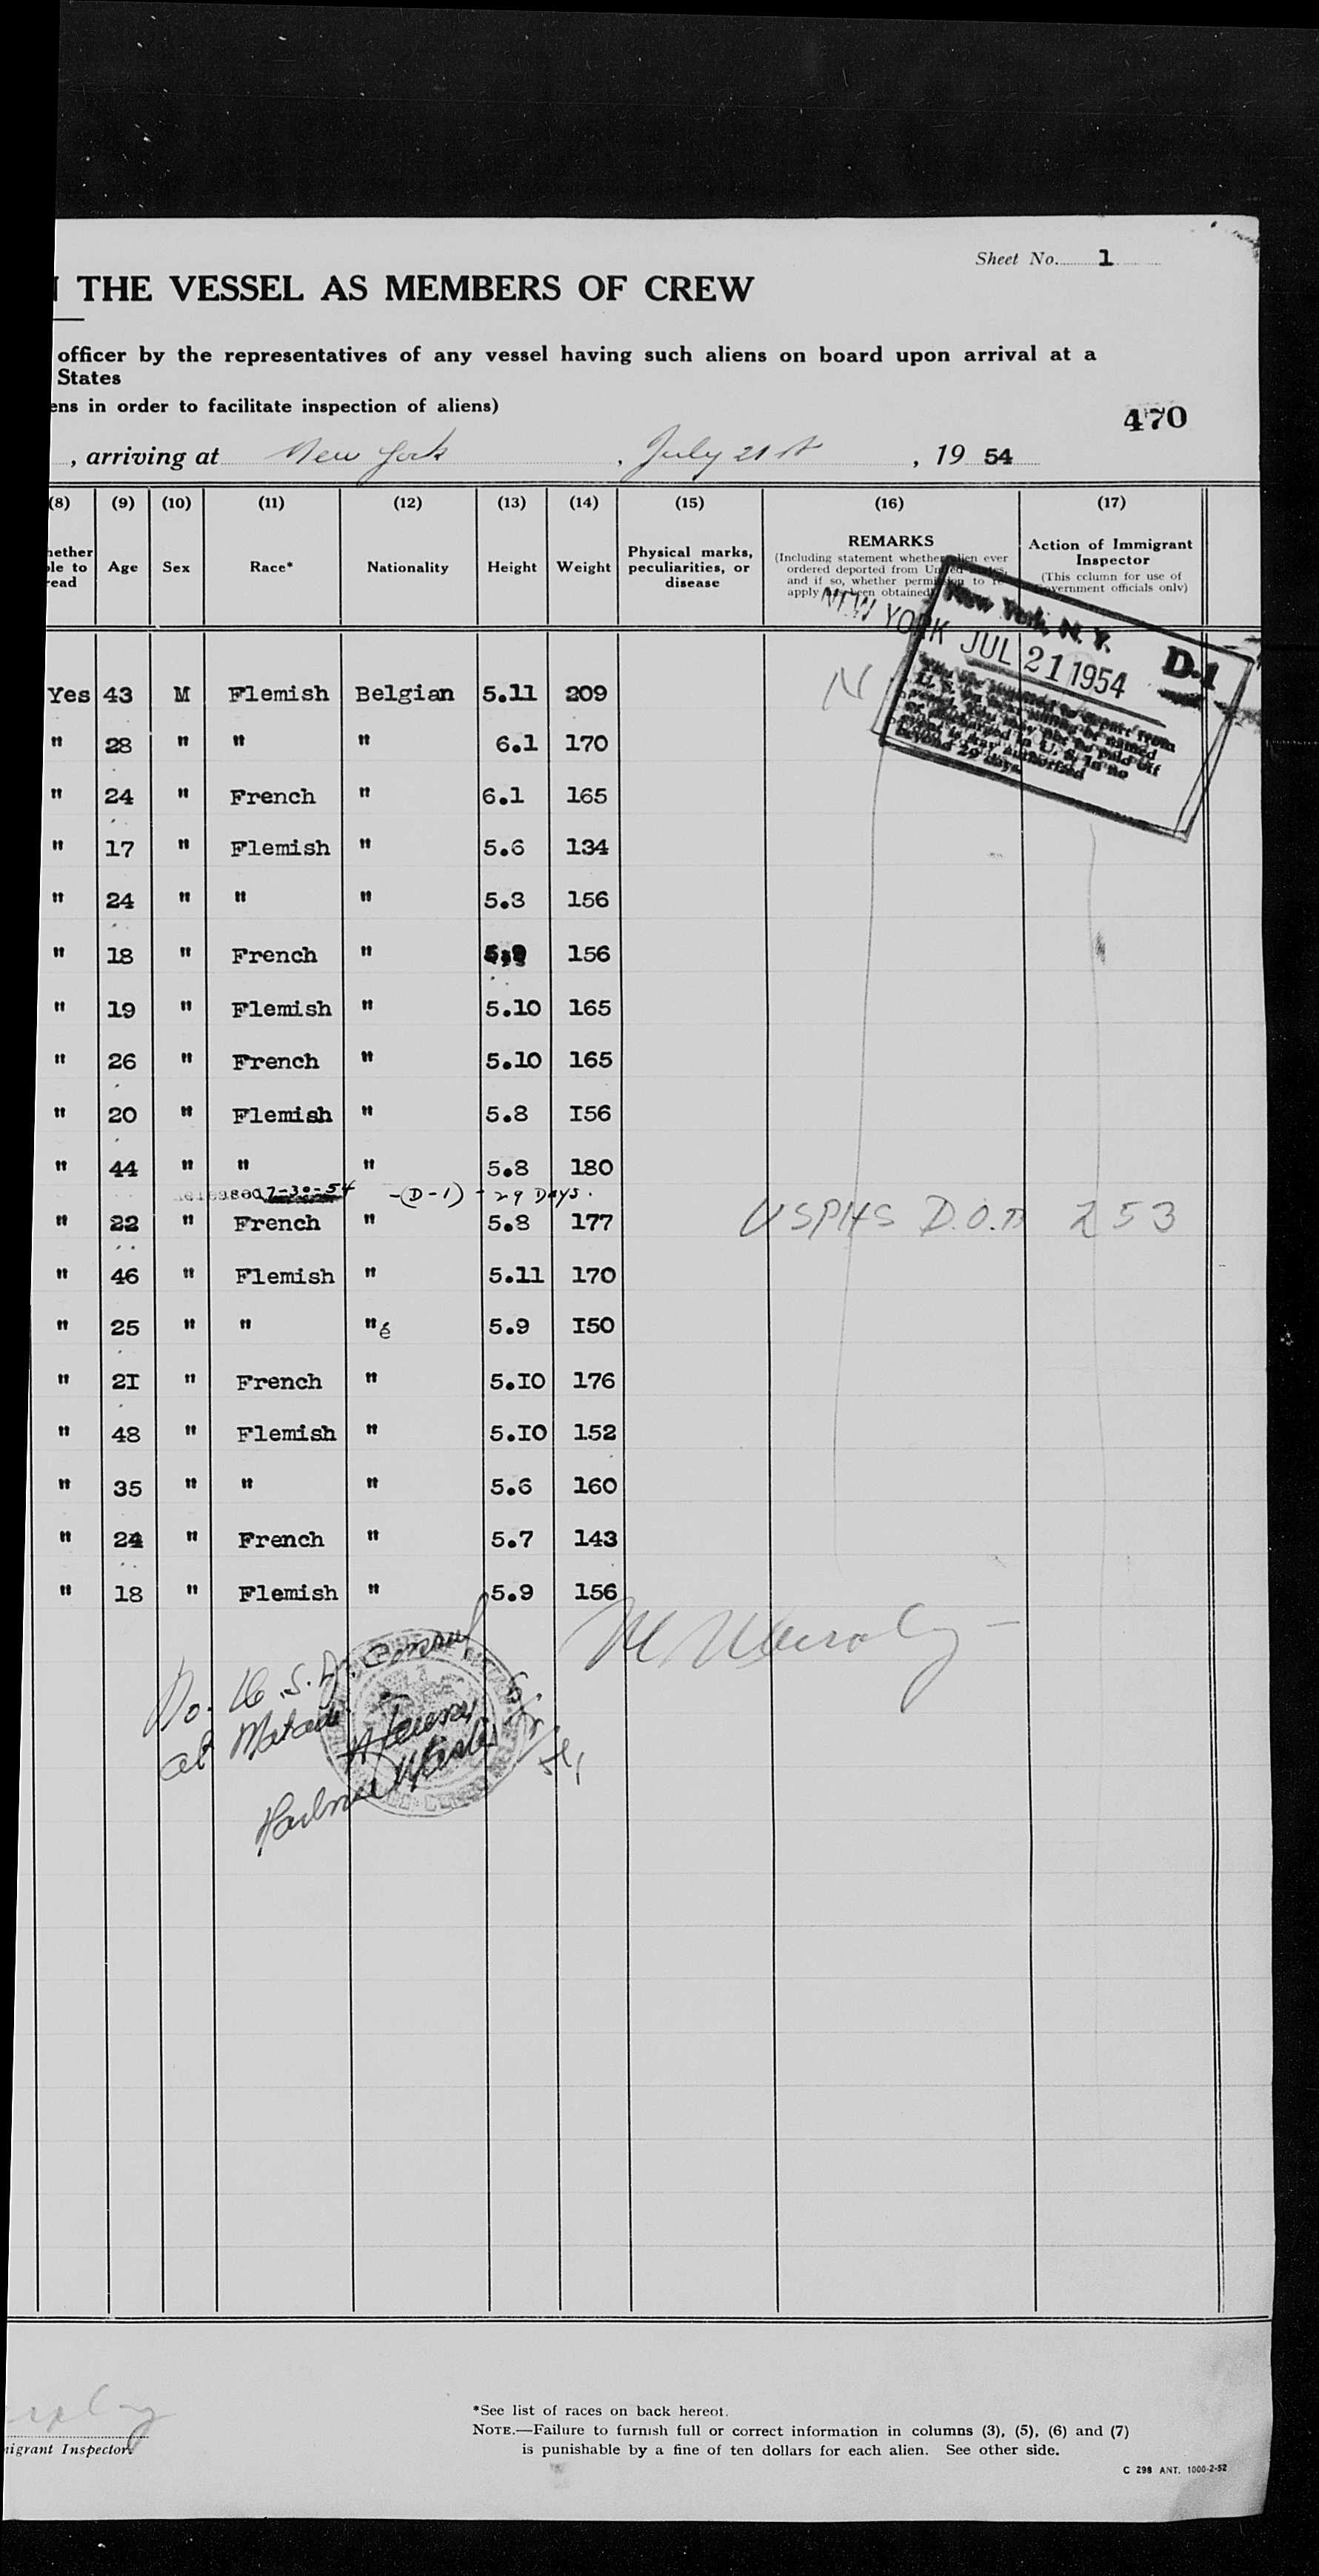 Sheet No. 1
THE VESSEL AS MEMBERS OF CREW
officer by the representatives of any vessel having such aliens on board upon arrival at a
States
ens in order to facilitate inspection of aliens)
470
, arriving at New York , July 21st , 19 54
(8) (9) (10) (11) (12) (13) (14) (15) (16) (17)
hether
le to
read
Age Sex Race* Nationality Height Weight
Physical marks,
peculiarities, or
disease
REMARKS
(Including statement whether alien ever
ordered deported from United States,
and if so, whether permission to re-
apply has been obtained)
Action of Immigrant
Inspector
(This column for use of
Government officials only)
NEW YORK
New York, N. Y.
JUL 21 1954
D-1
beyond 29 days
Yes 43 M Flemish Belgian 5.11 209
" 28 " " " 6.1 170
" 24 " French " 6.1 165
" 17 " Flemish " 5.6 134
" 24 " " " 5.8 156
" 18 " French " 5.9 156
" 19 " Flemish " 5.10 165
" 26 " French " 5.10 165
" 20 " Flemish " 5.8 I56
" 44 " " " 5.8 180
Released 7-30-54 -(D-1) - 29 Days.
" 22 " French " 5.8 177 USPHS 253
" 46 " Flemish " 5.11 170
" 25 " " "é 5.9 I50
" 2I " French " 5.I0 176
" 48 " Flemish " 5.I0 152
" 35 " " " 5.6 160
" 24 " French " 5.7 143
" 18 " Flemish " 5.9 156
Consul
at Matadi
*See list of races on back hereof.
NOTE.—Failure to furnish full or correct information in columns (3), (5), (6) and (7)
is punishable by a fine of ten dollars for each alien. See other side.
migrant Inspector.
C 298 ANT. 1000-2-52